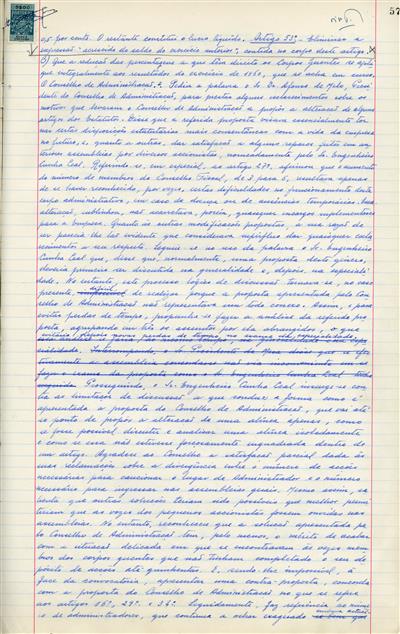 57
0,5 por cento. O restante constitui o lucro líquido. Artigo 33º - Eliminar a
expressão "acrescido do saldo do exercício anterior", contida no corpo deste artigo.
B) Que a redução das percentagens a que têm direito os Corpos Gerentes se apli-
que integralmente aos resultados do exercício de 1960, que se acha em curso.
O Conselho de Administração". Pediu a palavra o Sr. Dr. Afonso de Melo, Presi-
dente do Conselho de Administração, para prestar alguns esclarecimentos sobre os
motivos que levaram o Conselho de Administração a propor a alteração de alguns
artigos dos Estatutos. Disse que a referida proposta visava essencialmente tor-
nar certas disposições estatutárias mais consentâneas com a vida da empresa
no futuro, e, quanto a outras, dar satisfação a alguns reparos feitos em an-
teriores assembleias por diversos accionistas, nomeadamente pelo Sr. Engenheiro
Cunha Leal. Referindo-se, em especial, ao artigo 29º, afirmou que o aumento
do número de membros do Conselho Fiscal, de 3 para 5, resultava apenas
de se haver reconhecido, por vezes, certas dificuldades no funcionamento deste
corpo administrativo, em caso de doença ou de ausências temporárias. Essa
alteração, sublinhou, não acarretava, porém, quaisquer encargos suplementares
para a empresa. Quanto às outras modificações propostas, a sua razão de
ser parecia-lhe tão evidente que considerava supérfluo dar quaisquer escla-
recimentos a seu respeito. Seguiu-se no uso da palavra o Sr. Engenheiro
Cunha Leal que, disse que, normalmente, uma proposta deste género,
deveria primeiro ser discutida na generalidade e, depois, na especiali-
dade. No entanto, este processo lógico de discussão, tornava-se, no caso
presente, difícil de seguir porque a proposta apresentada pelo Con-
selho de Administração não representava um todo conexo. Assim, e para
evitar perdas de tempo, propunha-se fazer a análise da referida pro-
posta, agrupando em três os assuntos por ela abrangidos, o que
Prosseguindo, o Sr. Engenheiro Cunha Leal insurge-se con-
tra as limitações de discussão a que conduz a forma como é
apresentada a proposta do Conselho de Administração, que vai até
ao ponto de propor a alteração de uma alínea apenas, como
se fora possível discutir e analisar uma alínea isoladamente
e como se essa não estivera forçosamente enquadrada dentro de
um artigo. Agradece ao Conselho a satisfação parcial dada às
suas reclamações sobre a divergência entre o número de acções
necessárias para caucionar o lugar de Administrador e o número
necessário para ingressar nas assembleias gerais. Mesmo assim, sa-
lienta que outras soluções teriam sido possíveis que melhor permi-
tiriam que as vozes dos pequenos accionistas fossem ouvidas nas
assembleias. No entanto, reconhece que a solução apresentada pe-
lo Conselho de Administração tem, pelo menos, o mérito de acabar
com a situação delicada em que se encontravam às vezes mem-
bros dos corpos gerentes que não tinham completado o seu de-
pósito de acções até quinhentos. E, sendo-lhe impossível, à
face da convocatória, apresentar uma contra-proposta, concorda
com a proposta do Conselho de Administração no que se refere
aos artigos 16º, 29º e 36º. Seguidamente, faz referência ao núme-
ro de administradores, que continua a achar exagerado